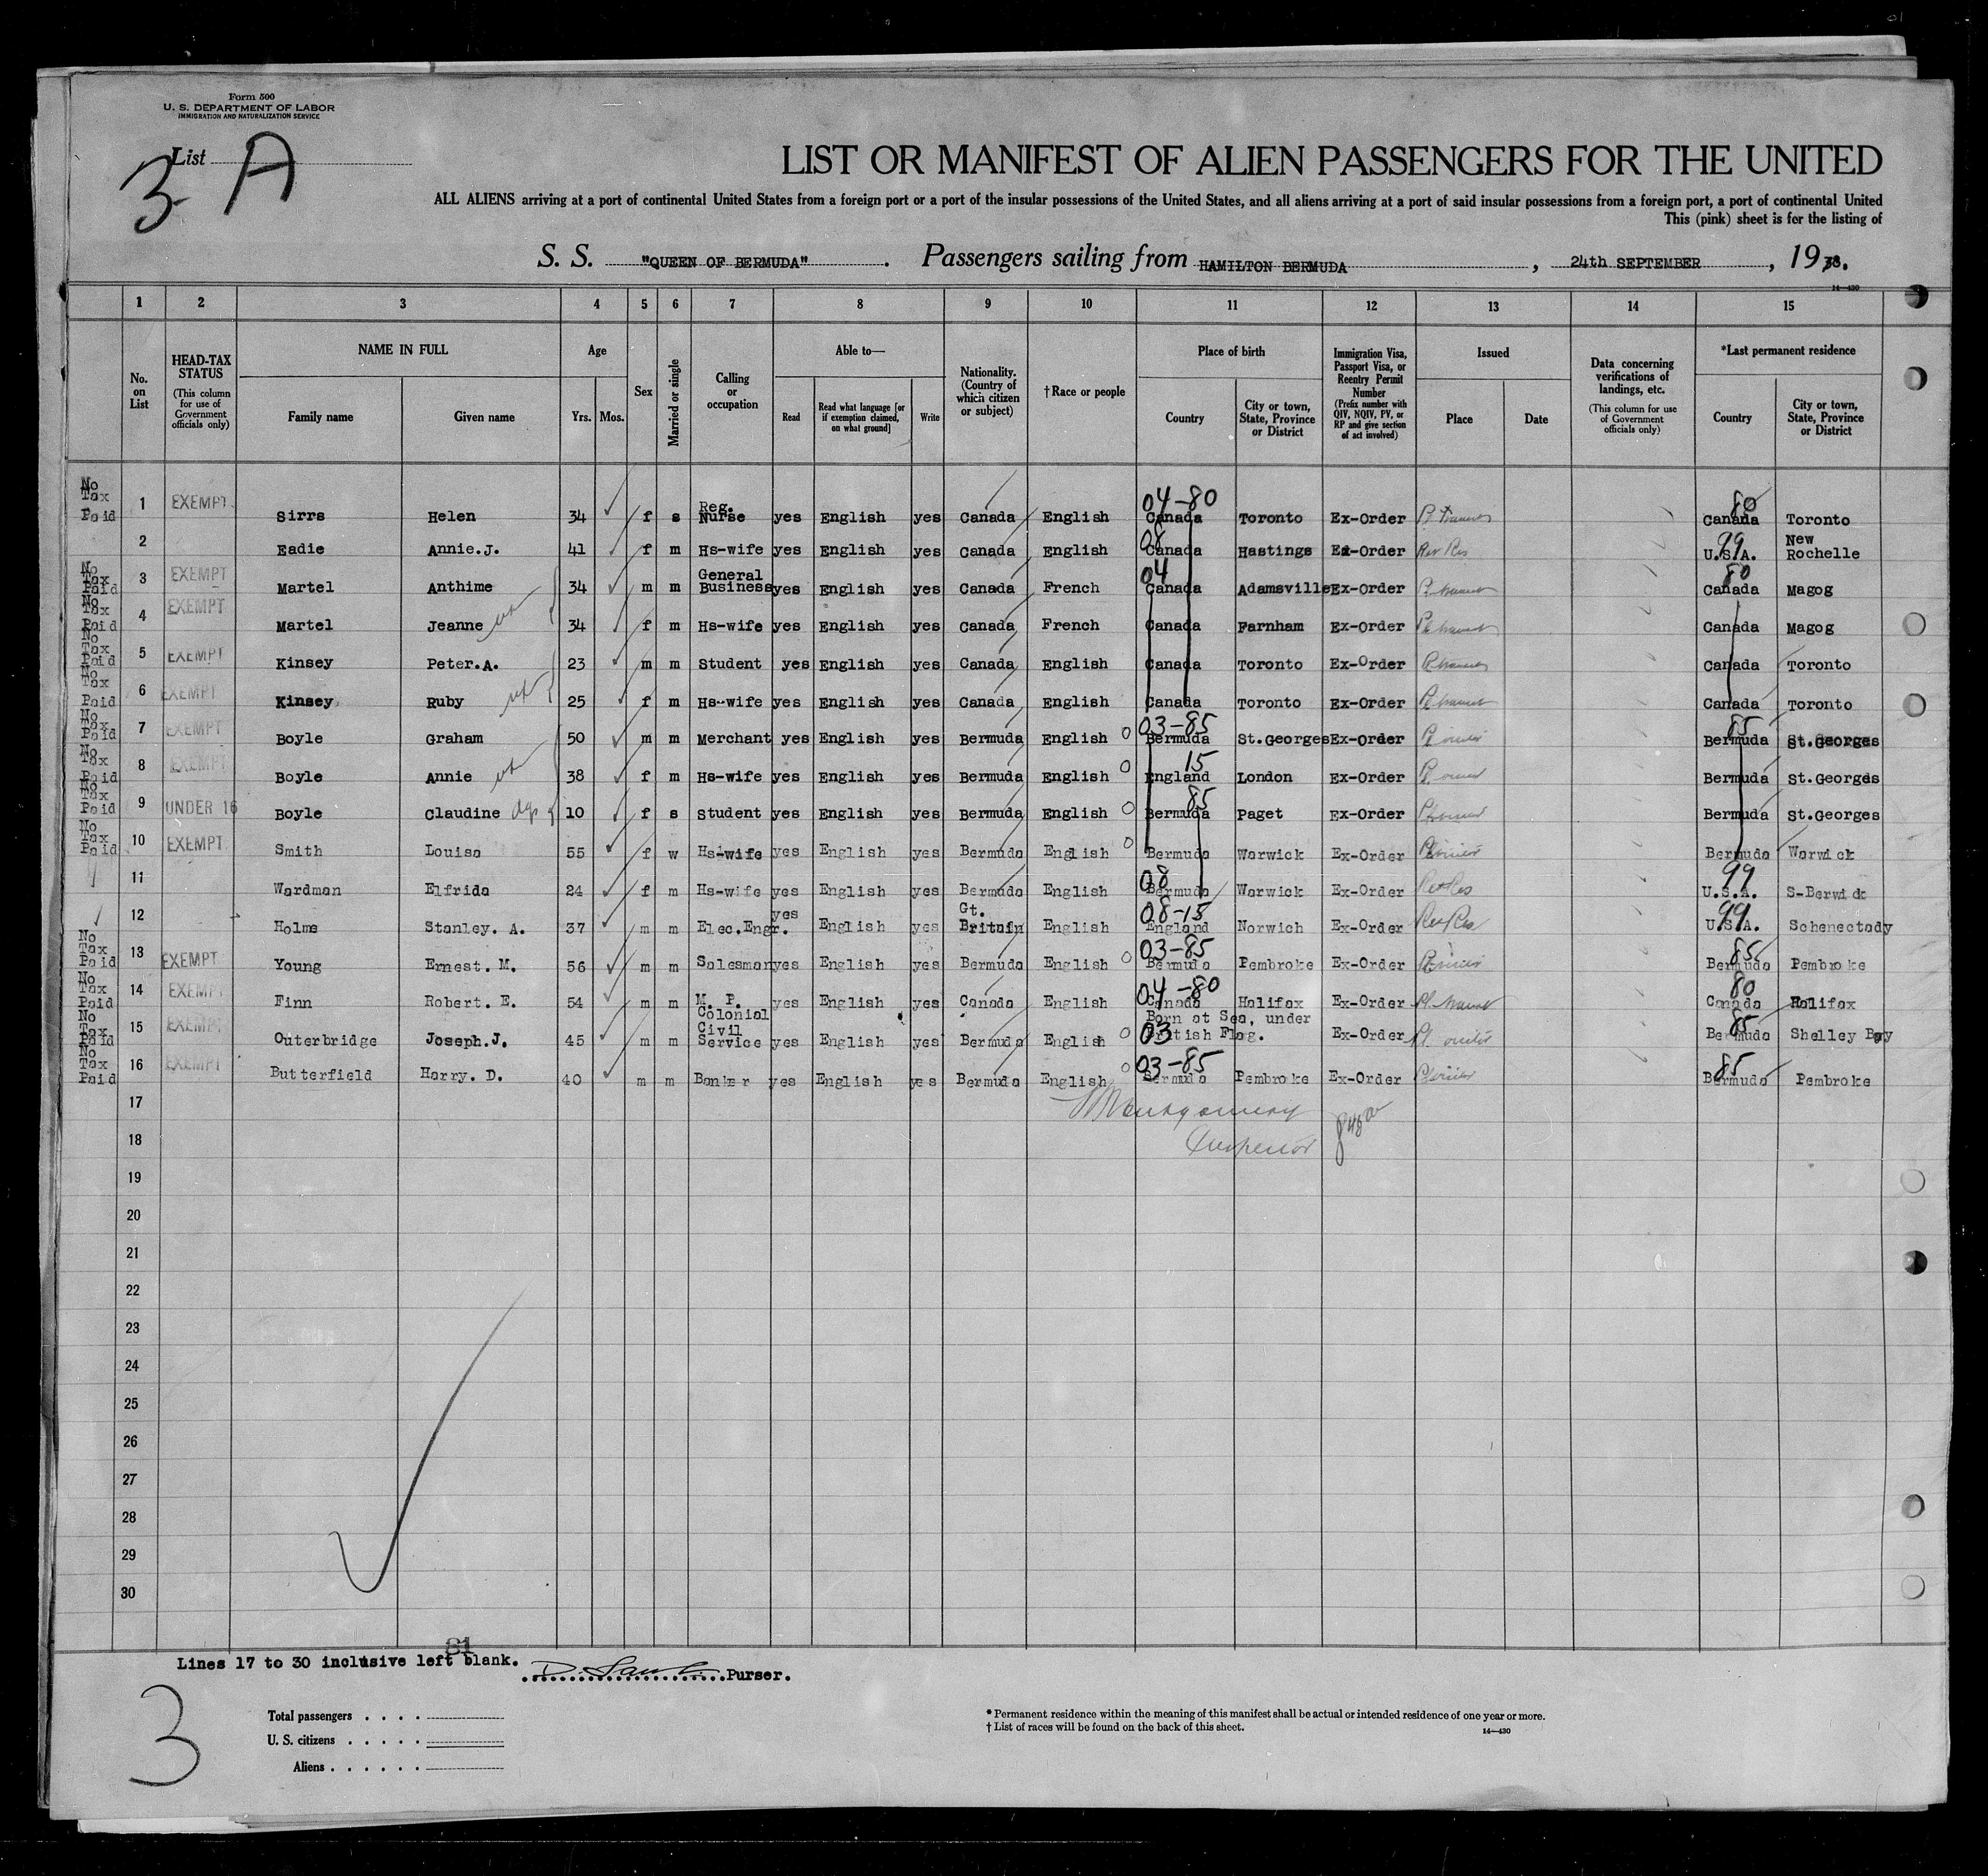 Form 500
U. S. DEPARTMENT OF LABOR
IMMIGRATION AND NATURALIZATION SERVICE
List
3 A
LIST OR MANIFEST OF ALIEN PASSENGERS FOR THE UNITED
ALL ALIENS arriving at a port of continental United States from a foreign port or a port of the insular possessions of the United States, and all aliens arriving at a port of said insular possessions from a foreign port, a port of continental United
This (pink) sheet is for the listing of
S. S. "QUEEN OF BERMUDA". Passengers sailing from HAMILTON BERMUDA, 24th SEPTEMBER, 1938.
14—430
1 2 3 4 5 6 7 8 9 10 11 12 13 14 15
No. on List
HEAD-TAX STATUS
(This column for use of Government officials only)
NAME IN FULL
Family name Given name
Age
Yrs. Mos.
Sex
Married or single
Calling or occupation
Able to—
Read
Read what language [or if exemption claimed, on what ground]
Write
Nationality. (Country of which citizen or subject)
† Race or people
Place of birth
Country
City or town, State, Province or District
Immigration Visa, Passport Visa, or Reentry Permit Number
(Prefix number with QIV, NQIV, PV, or RP and give section of act involved)
Issued
Place Date
Data concerning verifications of landings, etc.
(This column for use of Government officials only)
*Last permanent residence
Country
City or town, State, Province or District
No Tax Paid 1 EXEMPT Sirrs Helen 34 f s Reg. Nurse yes English yes Canada English 04-80 Canada Toronto Ex-Order 80 Canada Toronto
2 Eadie Annie.J. 41 f m Hs-wife yes English yes Canada English 08 Canada Hastings Ex-Order Ret Res 99 U.S.A. New Rochelle
No Tax Paid 3 EXEMPT Martel Anthime 34 m m General Business yes English yes Canada French 04 Canada Adamsville Ex-Order 80 Canada Magog
No Tax Paid 4 EXEMPT Martel Jeanne 34 f m Hs-wife yes English yes Canada French Canada Farnham Ex-Order Canada Magog
No Tax Paid 5 EXEMPT Kinsey Peter.A. 23 m m Student yes English yes Canada English Canada Toronto Ex-Order Canada Toronto
No Tax Paid 6 EXEMPT Kinsey Ruby 25 f m Hs-wife yes English yes Canada English Canada Toronto Ex-Order Canada Toronto
No Tax Paid 7 EXEMPT Boyle Graham 50 m m Merchant yes English yes Bermuda English 0 03-85 Bermuda St.Georges Ex-Order 85 Bermuda St.Georges
No Tax Paid 8 EXEMPT Boyle Annie 38 f m Hs-wife yes English yes Bermuda English 0 15 England London Ex-Order Bermuda St.Georges
No Tax Paid 9 UNDER 16 Boyle Claudine 10 f s Student yes English yes Bermuda English 0 85 Bermuda Paget Ex-Order Bermuda St.Georges
No Tax Paid 10 EXEMPT Smith Louisa 55 f w Hs-wife yes English yes Bermuda English 0 Bermuda Warwick Ex-Order Bermuda Warwick
11 Wardman Elfrida 24 f m Hs-wife yes English yes Bermuda English 08 Bermuda Warwick Ex-Order Ret Res 99 U.S.A. S-Berwick
12 Holme Stanley. A. 37 m m Elec.Engr. yes English yes Gt. Britain English 08-15 England Norwich Ex-Order Ret Res 99 U.S.A. Schenectady
No Tax Paid 13 EXEMPT Young Ernest. M. 56 m m Salesman yes English yes Bermuda English 0 03-85 Bermuda Pembroke Ex-Order 85 Bermuda Pembroke
No Tax Paid 14 EXEMPT Finn Robert. E. 54 m m M. P. yes English yes Canada English 04-80 Canada Halifax Ex-Order 80 Canada Halifax
No Tax Paid 15 EXEMPT Outerbridge Joseph.J. 45 m m Colonial Civil Service yes English yes Bermuda English 0 03 Born at Sea, under British Flag. Ex-Order 85 Bermuda Shelley Bay
No Tax Paid 16 EXEMPT Butterfield Harry. D. 40 m m Banker yes English yes Bermuda English 0 03-85 Bermuda Pembroke Ex-Order 85 Bermuda Pembroke
17 Montgomery
18 Inspector
19
20
21
22
23
24
25
26
27
28
29
30
81
Lines 17 to 30 inclusive left blank. Purser.
3
Total passengers
U. S. citizens
Aliens
* Permanent residence within the meaning of this manifest shall be actual or intended residence of one year or more.
† List of races will be found on the back of this sheet.
14—430